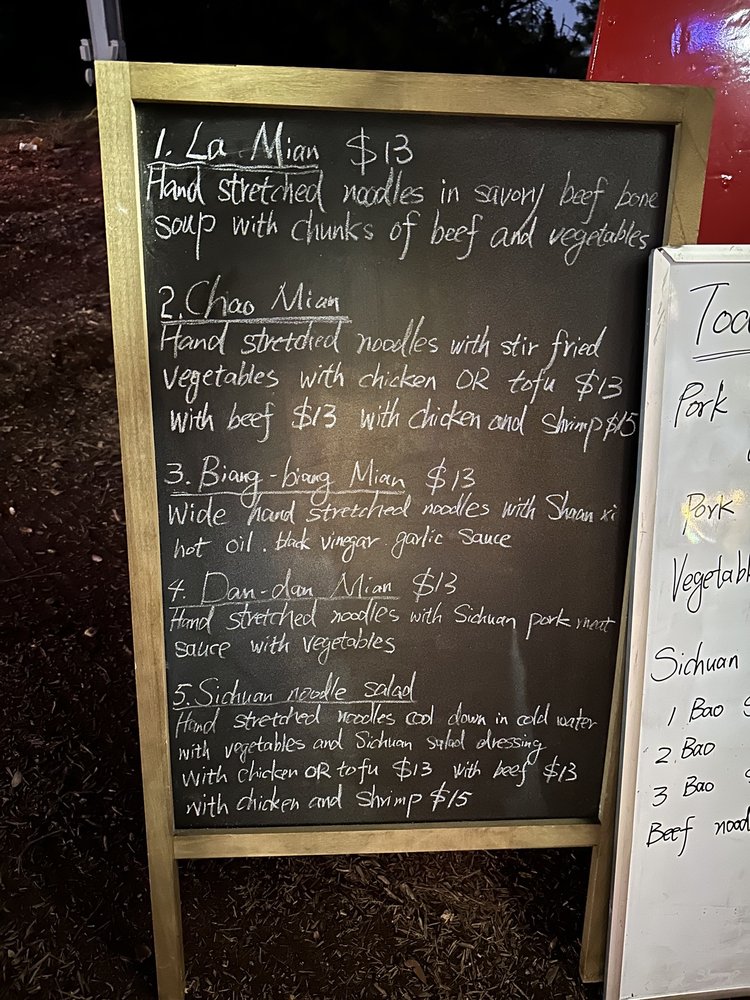 1. La Mian $13
Hand stretched noodles in savory beef bone
soup with chunks of beef and vegetables
2. Chao Mian
Hand stretched noodles with stir fried
vegetables with chicken OR tofu $13
with beef $13 with chicken and shrimp $15
3. Biang-biang Mian $13
Wide hand stretched noodles with Shaan xi
hot oil. black vinegar garlic sauce
4. Dan-dan Mian $13
Hand stretched noodles with Sichuan pork meat
sauce with vegetables
5. Sichuan noodle salad
Hand stretched noodles cool down in cold water
with vegetables and Sichuan salad dressing
with chicken OR tofu $13 with beef $13
with chicken and shrimp $15
Pork
Pork
Sichuan
1 Bao
2. Bao
3 Bao
Beef